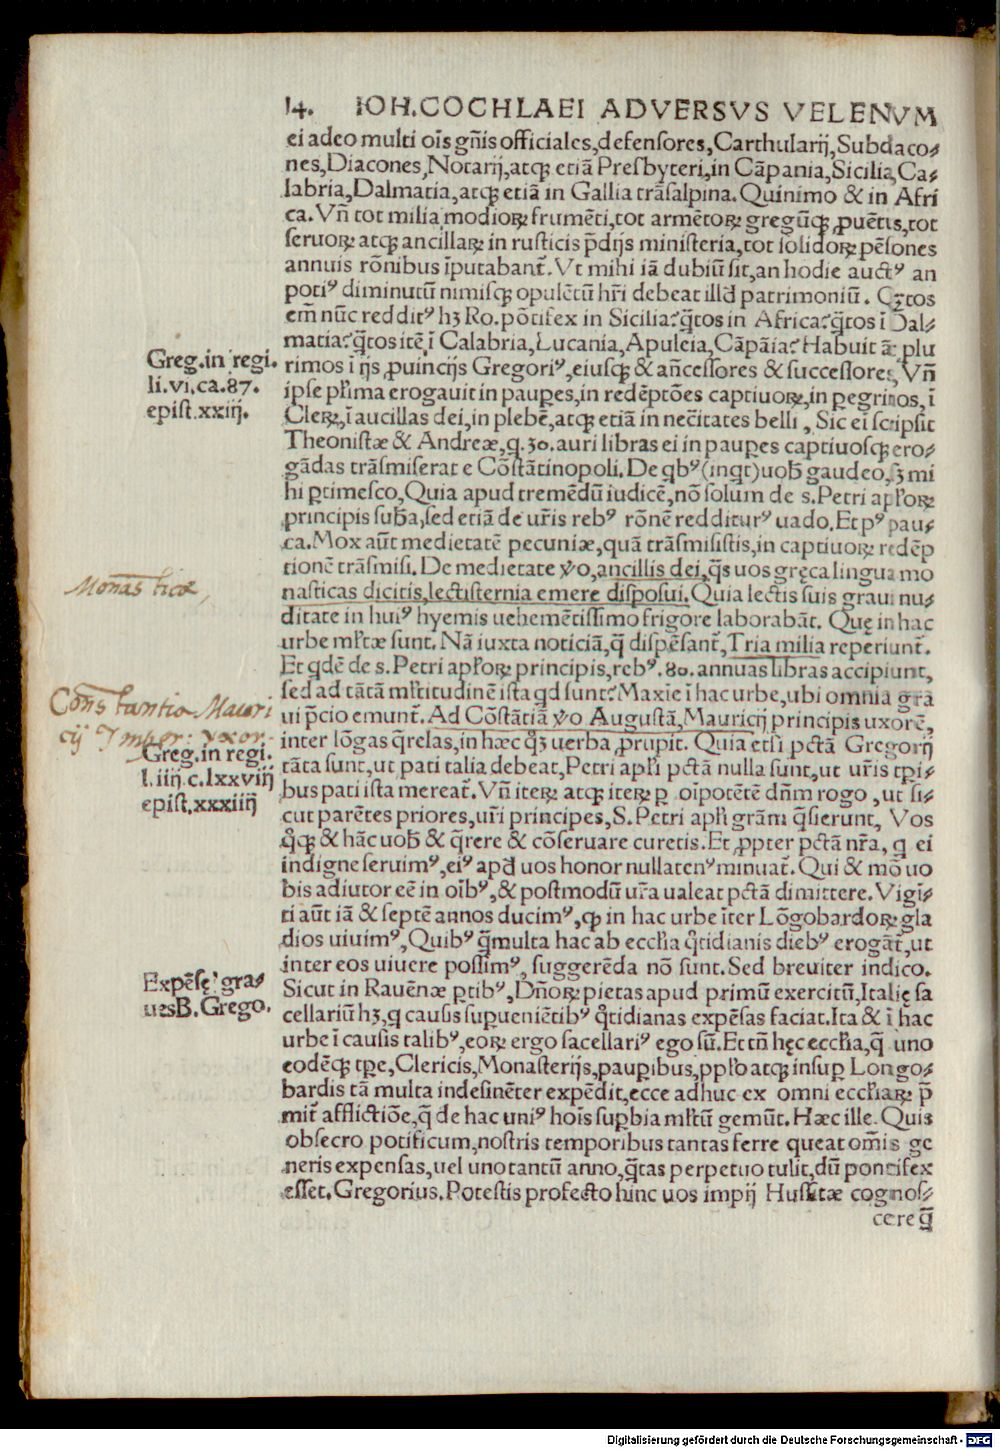 14. IOH.COCHLAEI ADVERSVS VELENVM
ei adeo multi oīs gn̄is officiales,defensores,Carthularij,Subdaco⸗
nes,Diacones,Notarij,atqꝫ etiā Presbyteri,in Cāpania,Sicilia,Ca⸗
labria,Dalmatia,atqꝫ etiā in Gallia trāsalpina.Quinimo & in Afri
ca.Vn̄ tot milia modioꝝ frumēti,tot armētoꝝ gregūqꝫ ꝓuētus,tot
seruoꝝ atqꝫ ancillaꝝ in rusticis p̄dijs ministeria,tot solidoꝝ pēsiones
annuis rōnibus īputabant̄.Vt mihi iā dubiū sit,an hodie auctꝰ an
potiꝰ diminutū nimisqꝫ opulētū hr̄i debeat illd̄ patrimoniū.
em̄ nūc redditꝰ hꝫ Ro.pōtifex in Sicilia?q̄tos in Africa?q̄tos ī Dal⸗
matia?q̄tos itē ī Calabria,Lucania,Apuleia,Cāpāia?Habuit plu
Greg.in regi.
li.vi.ca.87.
epist.xxiij.
rimos ī ijs ꝓuincijs Gregoriꝰ,eiusqꝫ & an̄cessores & successores,Vn̄
ipse pl'ima erogauit in paupes,in redēptōes captiuoꝝ,in pegrinos,ī
Cleꝝ,ī aucillas dei,in plebē,atqꝫ etiā in nec̄itates belli, Sic ei scripsit
Theonistæ & Andreæ,q.30.auri libras ei in paupes captiuosqꝫ ero⸗
gādas trāsmiserat e Cōstātinopoli.De qbꝰ(inqt)uob̄ gaudeo,sꝫ mi
hi ꝑtimesco,Quia apud tremēdū iudicē,nō solum de s.Petri apl'oꝝ
principis sub̄a,sed etiā de ur̄is rebꝰ rōnē redditurꝰ uado.Et pꝰ pau⸗
ca.Mox aūt medietatē pecuniæ,quā trāsmisistis,in captiuoꝝ redēp
tionē trāsmisi.De medietate ꝟo,ancillis dei,q̄s uos gręca lingua mo
Monasticæ,
nasticas dicitis,lectisternia emere disposui.Quia lectis suis graui nu⸗
ditate in huiꝰ hyemis uehemētissimo frigore laborabāt. Quę in hac
urbe ml'tæ sunt. Nā iuxta noticiā,q̄ dispēsant̄,Tria milia reperiunt̄.
Et qdē de s.Petri apl'oꝝ principis,rebꝰ.80.annuas libras accipiunt,
sed ad tātā ml'titudinē ista qd sunt?Maxie ī hac urbe,ubi omnia gra
Constantia Mauri
cij Imper: vxor.
ui p̄cio emunt̄.Ad Cōstātiā ꝟo Augustā,Mauricij principis uxorē,
Greg.in regi.
l.iiij.c.lxxviij
epist.xxxiiij
inter lōgas q̄relas,in hæc qꝫ uerba ꝓrupit. Quia etsi pctā Gregorij
tāta sunt,ut pati talia debeat,Petri apl'i pctā nulla sunt,ut ur̄is tpi⸗
bus pati ista mereat̄.Vn̄ iteꝝ atqꝫ iteꝝ ꝑ oīpotētē dn̄m rogo,ut si⸗
cut parētes priores,ur̄i principes,S.Petri apl'i grām q̄sierunt, Vos
qꝫ & hāc uob̄ & q̄rere & cōseruare curetis.Et ꝓpter pctā nr̄a, q ei
indigne seruimꝰ,eiꝰ apd̄ uos honor nullatenꝰ minuat̄. Qui & mō uo
bis adiutor eē in oībꝰ,& postmodū ur̄a ualeat pctā dimittere.Vigī⸗
ti aūt iā & septē annos ducimꝰ,ꝙ in hac urbe īter Lōgobardoꝝ gla
dios uiuimꝰ,Quibꝰ q̄multa hac ab eccl'ia q̄tidianis diebꝰ erogāt̄,ut
inter eos uiuere possimꝰ, suggerēda nō sunt. Sed breuiter indico.
Expēsę gra⸗
uesB. Grego.
Sicut in Rauēnæ ꝑtibꝰ,Dn̄oꝝ pietas apud primū exercitū,Italię sa
cellariū hꝫ,q causis supueniētibꝰ q̄tidianas expēsas faciat.Ita & ī hac
urbe ī causis talibꝰ,eoꝝ ergo sacellariꝰ ego sū.Et tn̄ hęc eccl'ia,q̄ uno
eodēqꝫ tpe,Clericis,Monasterijs,pauꝑibus,ppl'o atqꝫ insuꝑ Longo⸗
bardis tā multa indesinēter expēdit,ecce adhuc ex omni eccl'iaꝝ p̄
mit̄ afflictiōe,q̄ de hac uniꝰ hoīs suꝑbia ml'tū gemūt.Hæc ille.Quis
obsecro pōtificum,nostris temporibus tantas ferre queat om̄is ge
neris expensas,uel uno tantū anno,q̄tas perpetuo tulit,dū pontifex
esset.Gregorius.Potestis profecto hinc uos impij Hussitæ cognos⸗
cere q̄
Digitalisierung gefördert durch die Deutsche Forschungsgemeinschaft - DFG